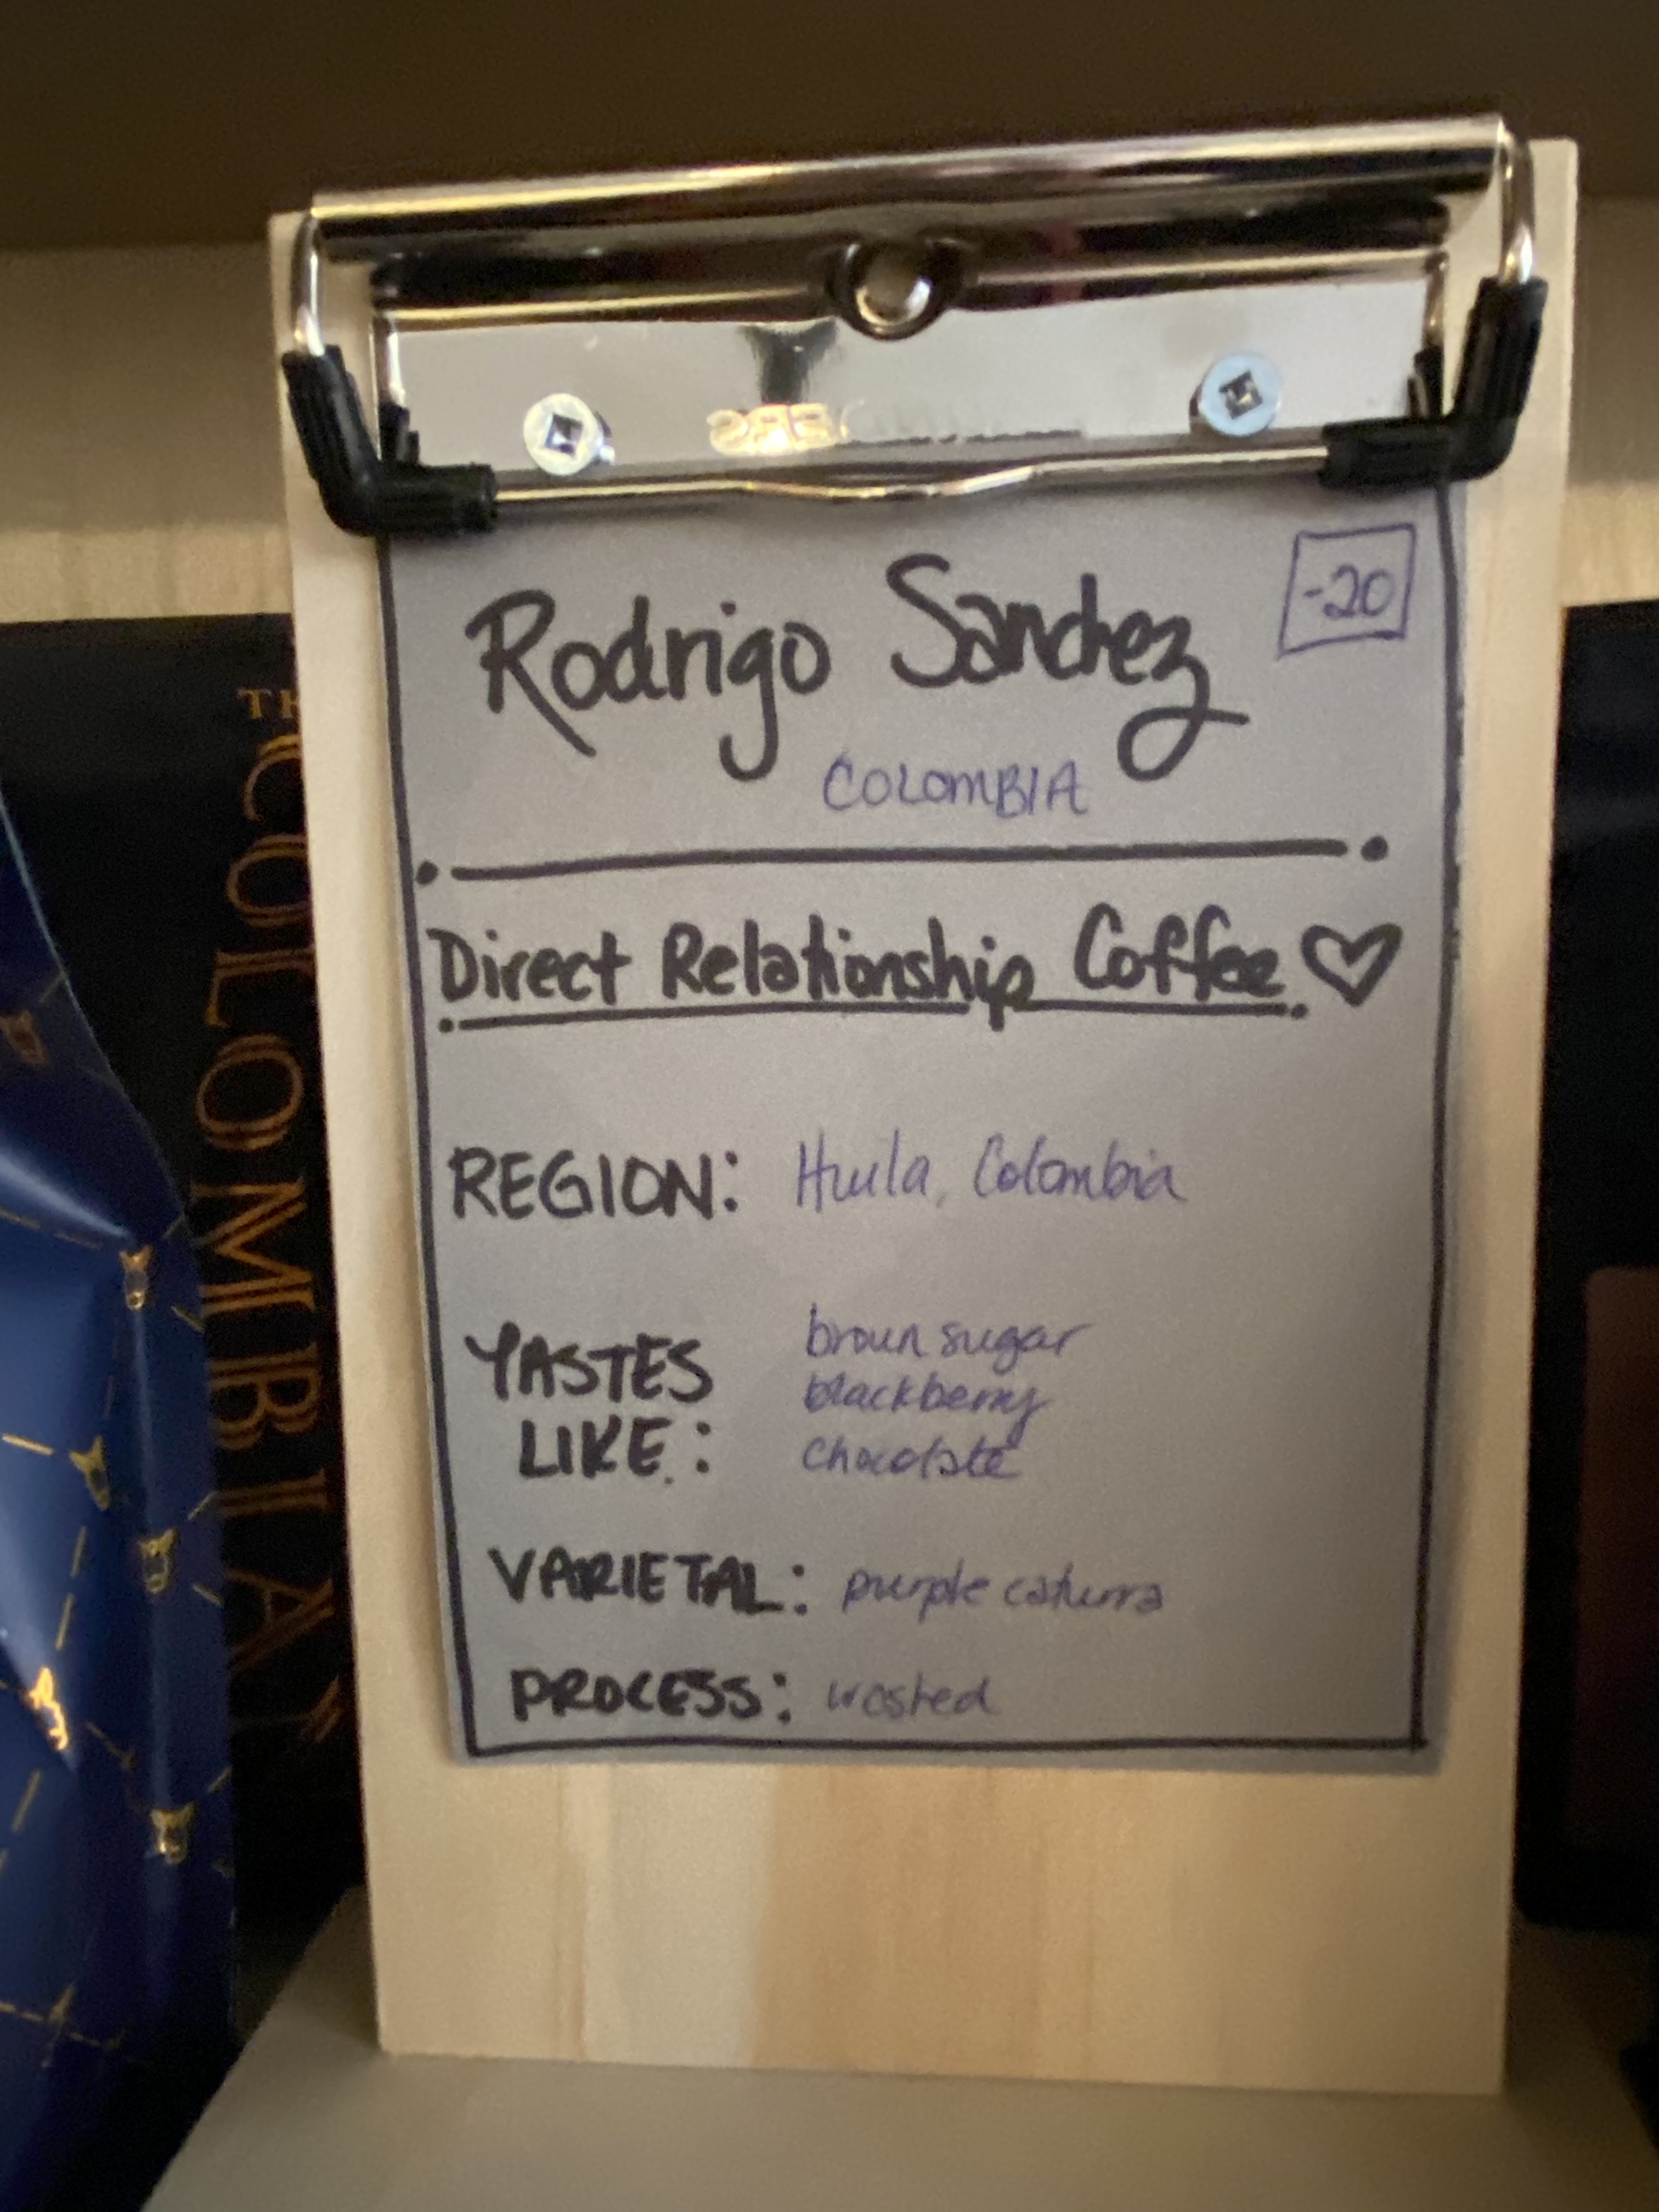 Rodrigo Sanchez
-20
COLOMBIA
Direct Relationship Coffee
REGION: Huila, Colombia
TASTES LIKE:
brown sugar
blackberry
chocolate
VARIETAL: purple caturra
PROCESS: washed
COLOMBIA